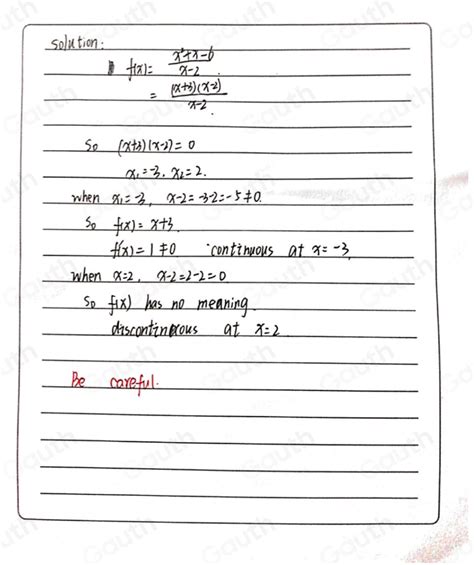 Solution:
f(x) = x²+x-6
x-2
= (x+3)(x-2)
x-2
So (x+3)(x-2) = 0
x₁ = -3, x₂ = 2.
when x₁ = -3, x-2 = -3-2 = -5 ≠ 0.
So f(x) = x+3.
f'(x) = 1 ≠ 0 continuous at x = -3
when x=2, x-2=2-2=0
So f(x) has no meaning.
discontinuous at x=2
Be careful.